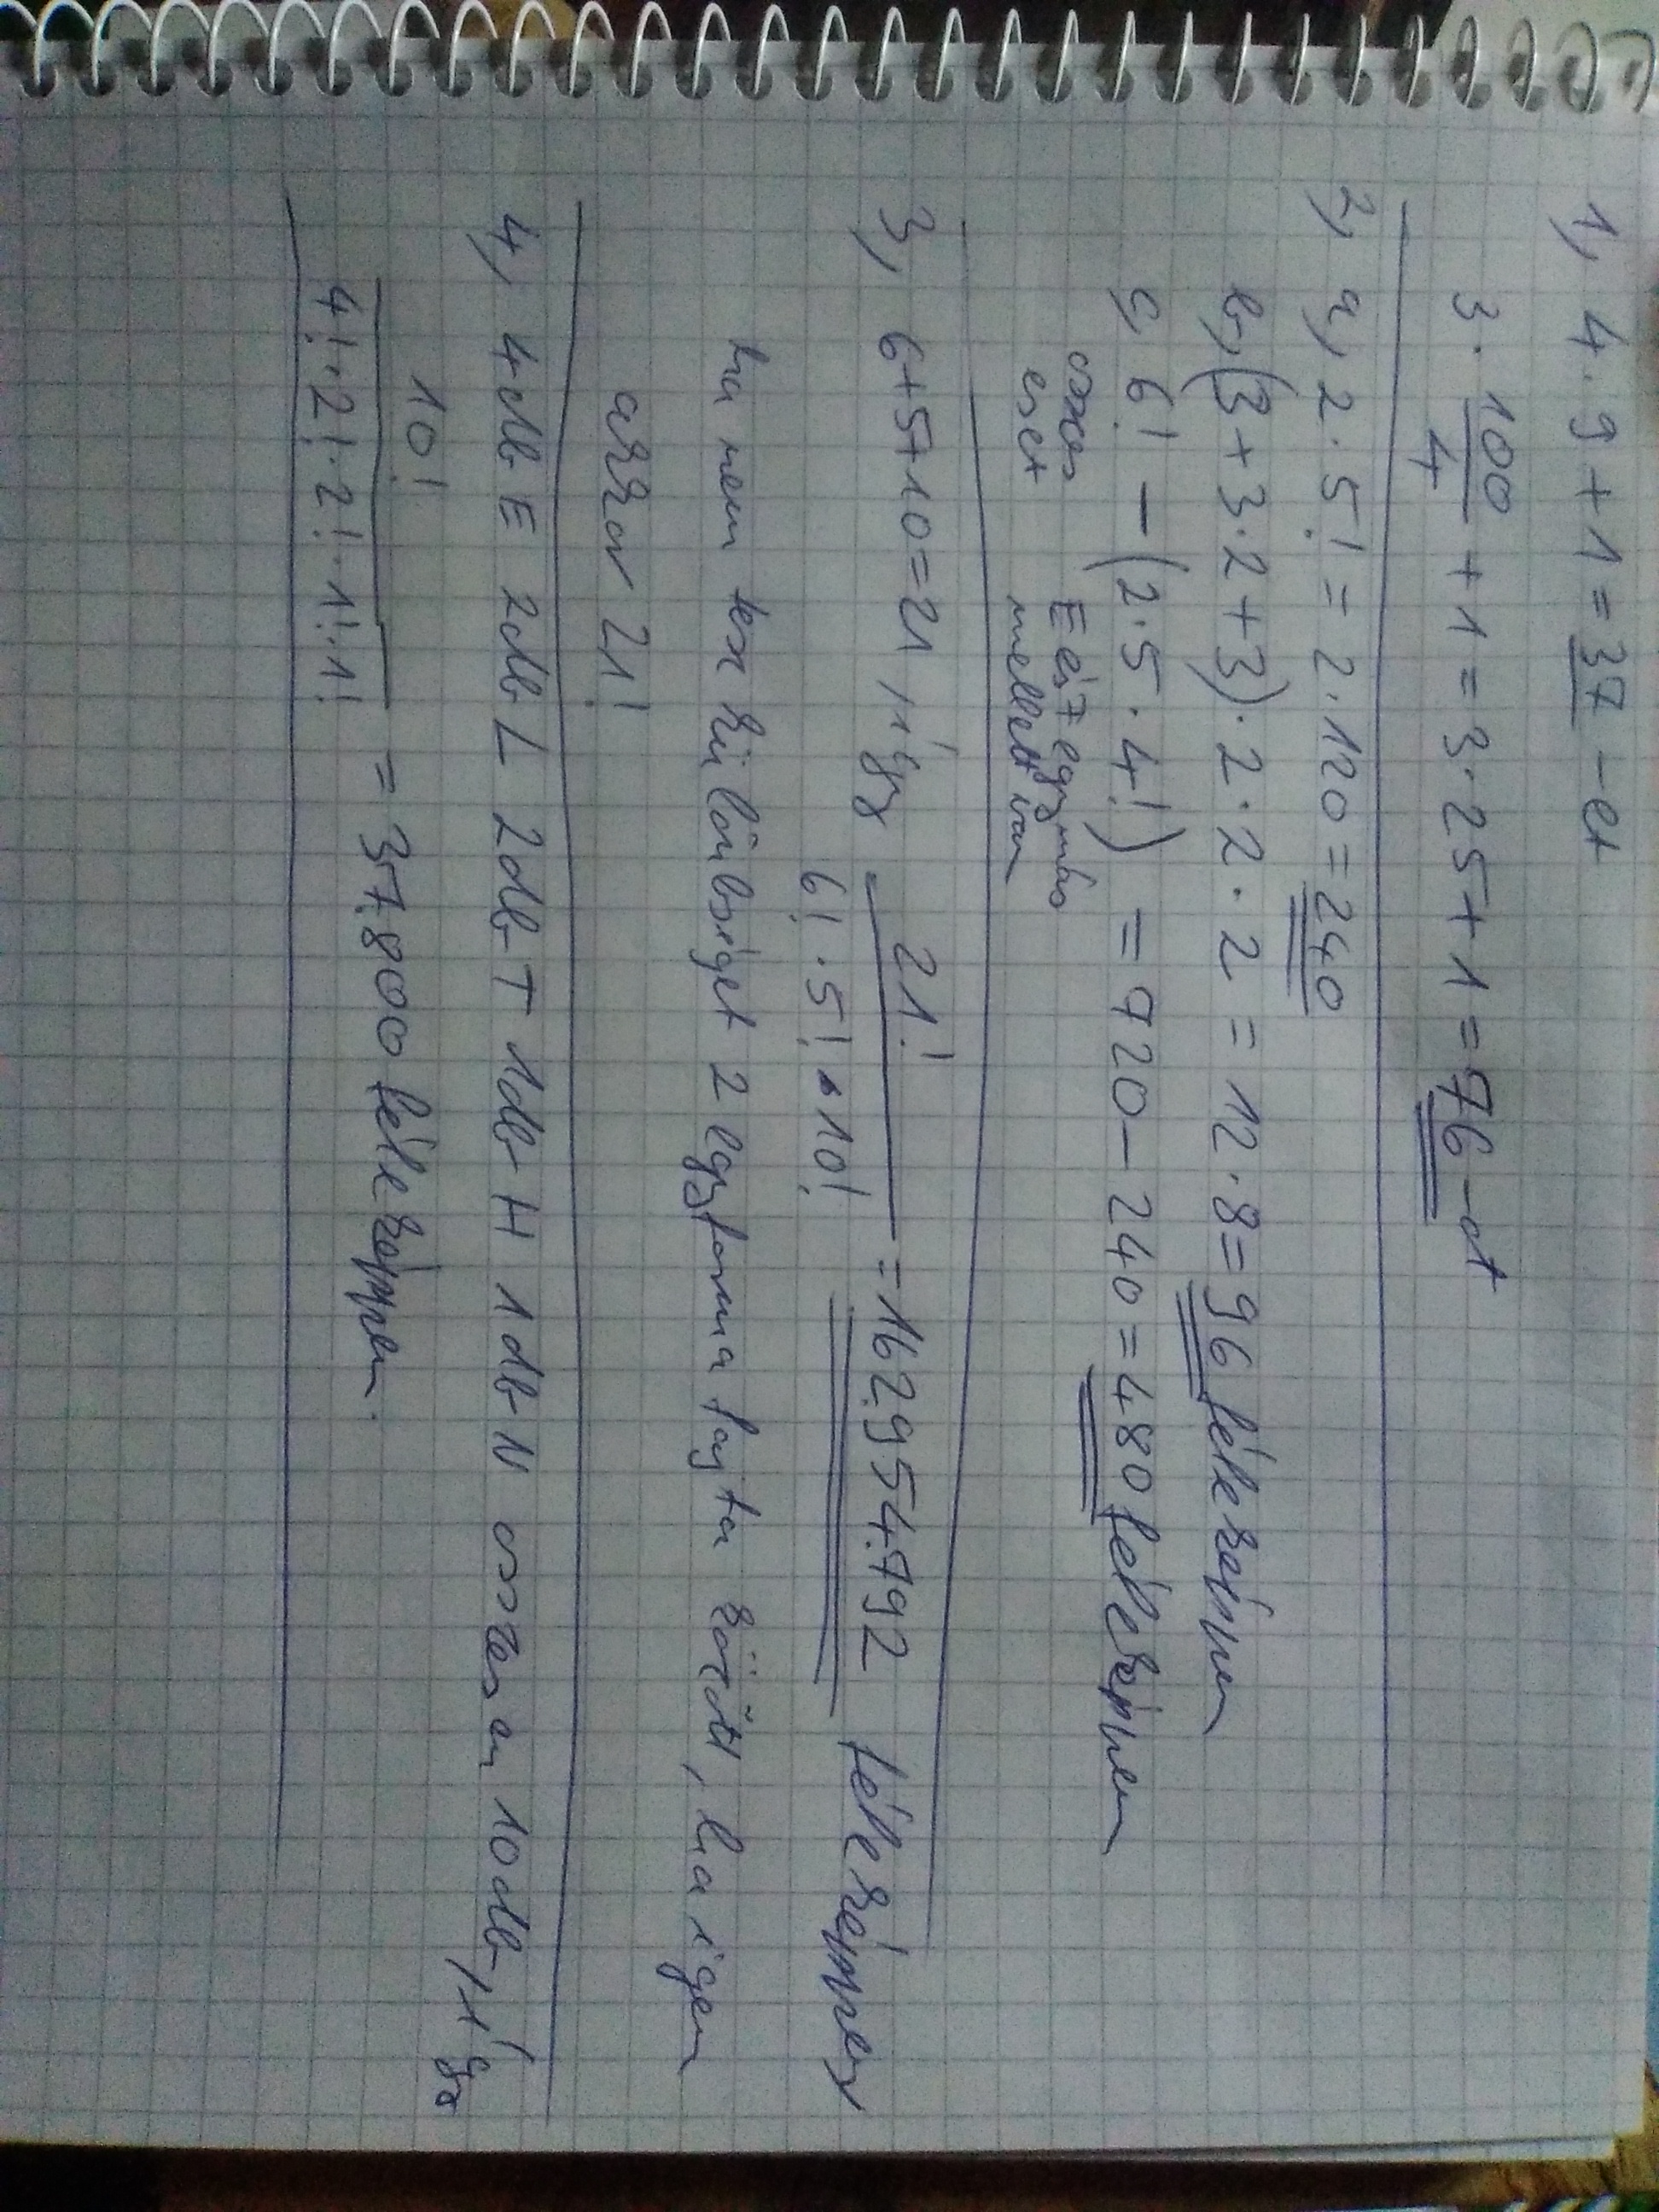 1, 4·9+1=37-et
3·100/4+1=3·25+1=76-ot
2, a, 2·5!=2·120=240
b, (3+3·2+3)·2·2·2=12·8=96 féleképpen
c, 6! - (2·5·4!) = 720-240=480 féleképpen
összes eset
E és 7 egymás mellett van
3, 6+5+10=21 így 21!/6!·5!·10! = 162.954.792 féleképpen
ha nem tesz különbséget 2 egyforma fajta között, ha igen
akkor 21!
4, 4db E 2db L 2db T 1db H 1db N összesen 10db, így
10!/4!·2!·2!·1!·1! = 37.800 féleképpen.